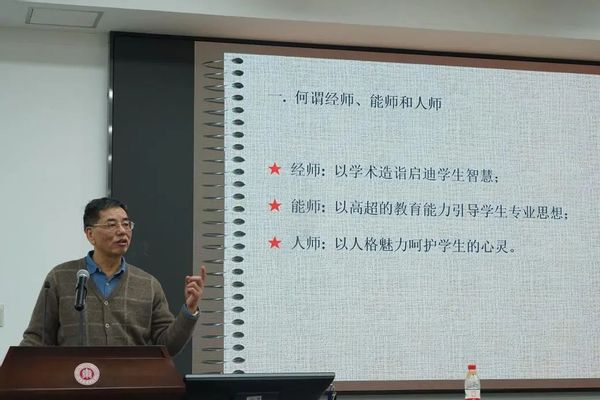 一. 何谓经师、能师和人师
★ 经师：以学术造诣启迪学生智慧；
★ 能师：以高超的教育能力引导学生专业思想；
★ 人师：以人格魅力呵护学生的心灵。